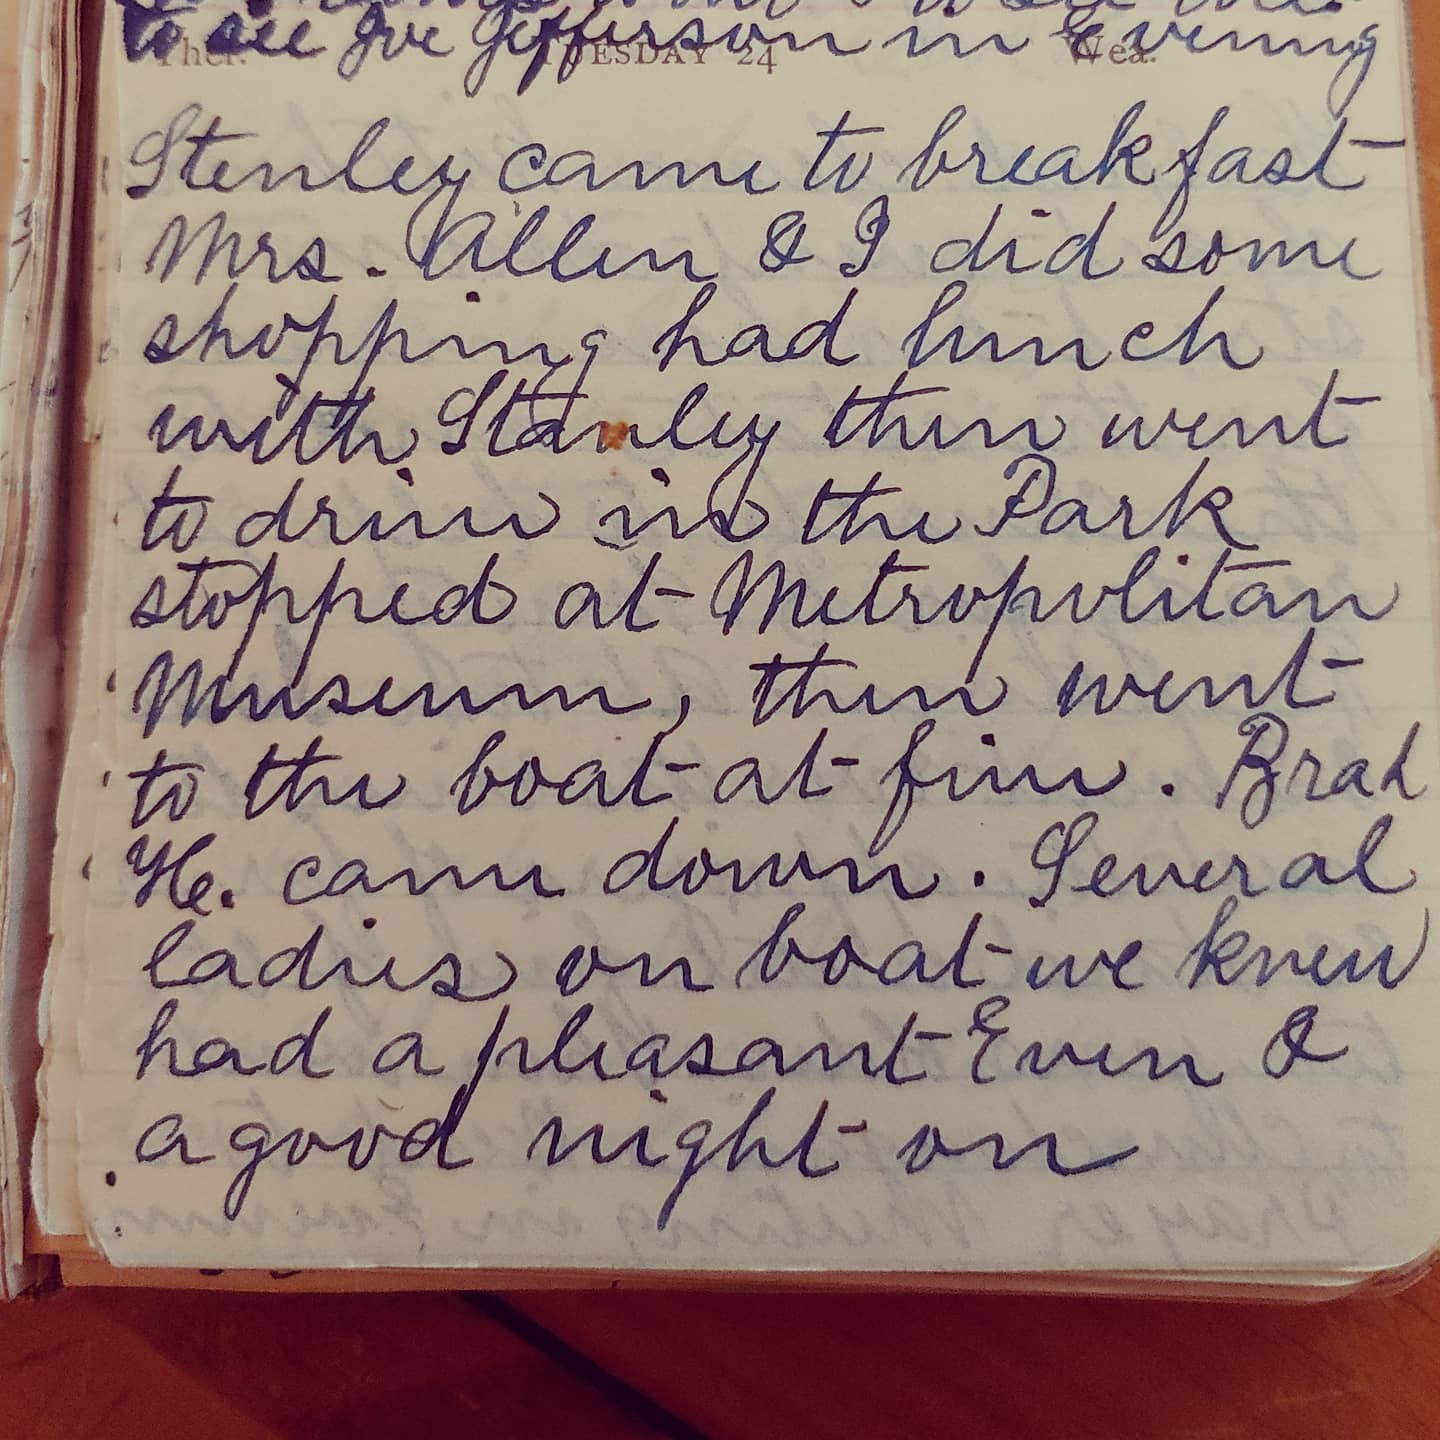 to see Joe Jefferson in Evening
Ther. TUESDAY 24 Wea.
Stenley came to breakfast
Mrs. Allen & I did some
shopping had lunch
with Stanley then went
to drive in the Park
stopped at Metropolitan
Museum, then went
to the boat at five. Brad
He. came down. Several
ladies on boat we knew
had a pleasant Even &
a good night on